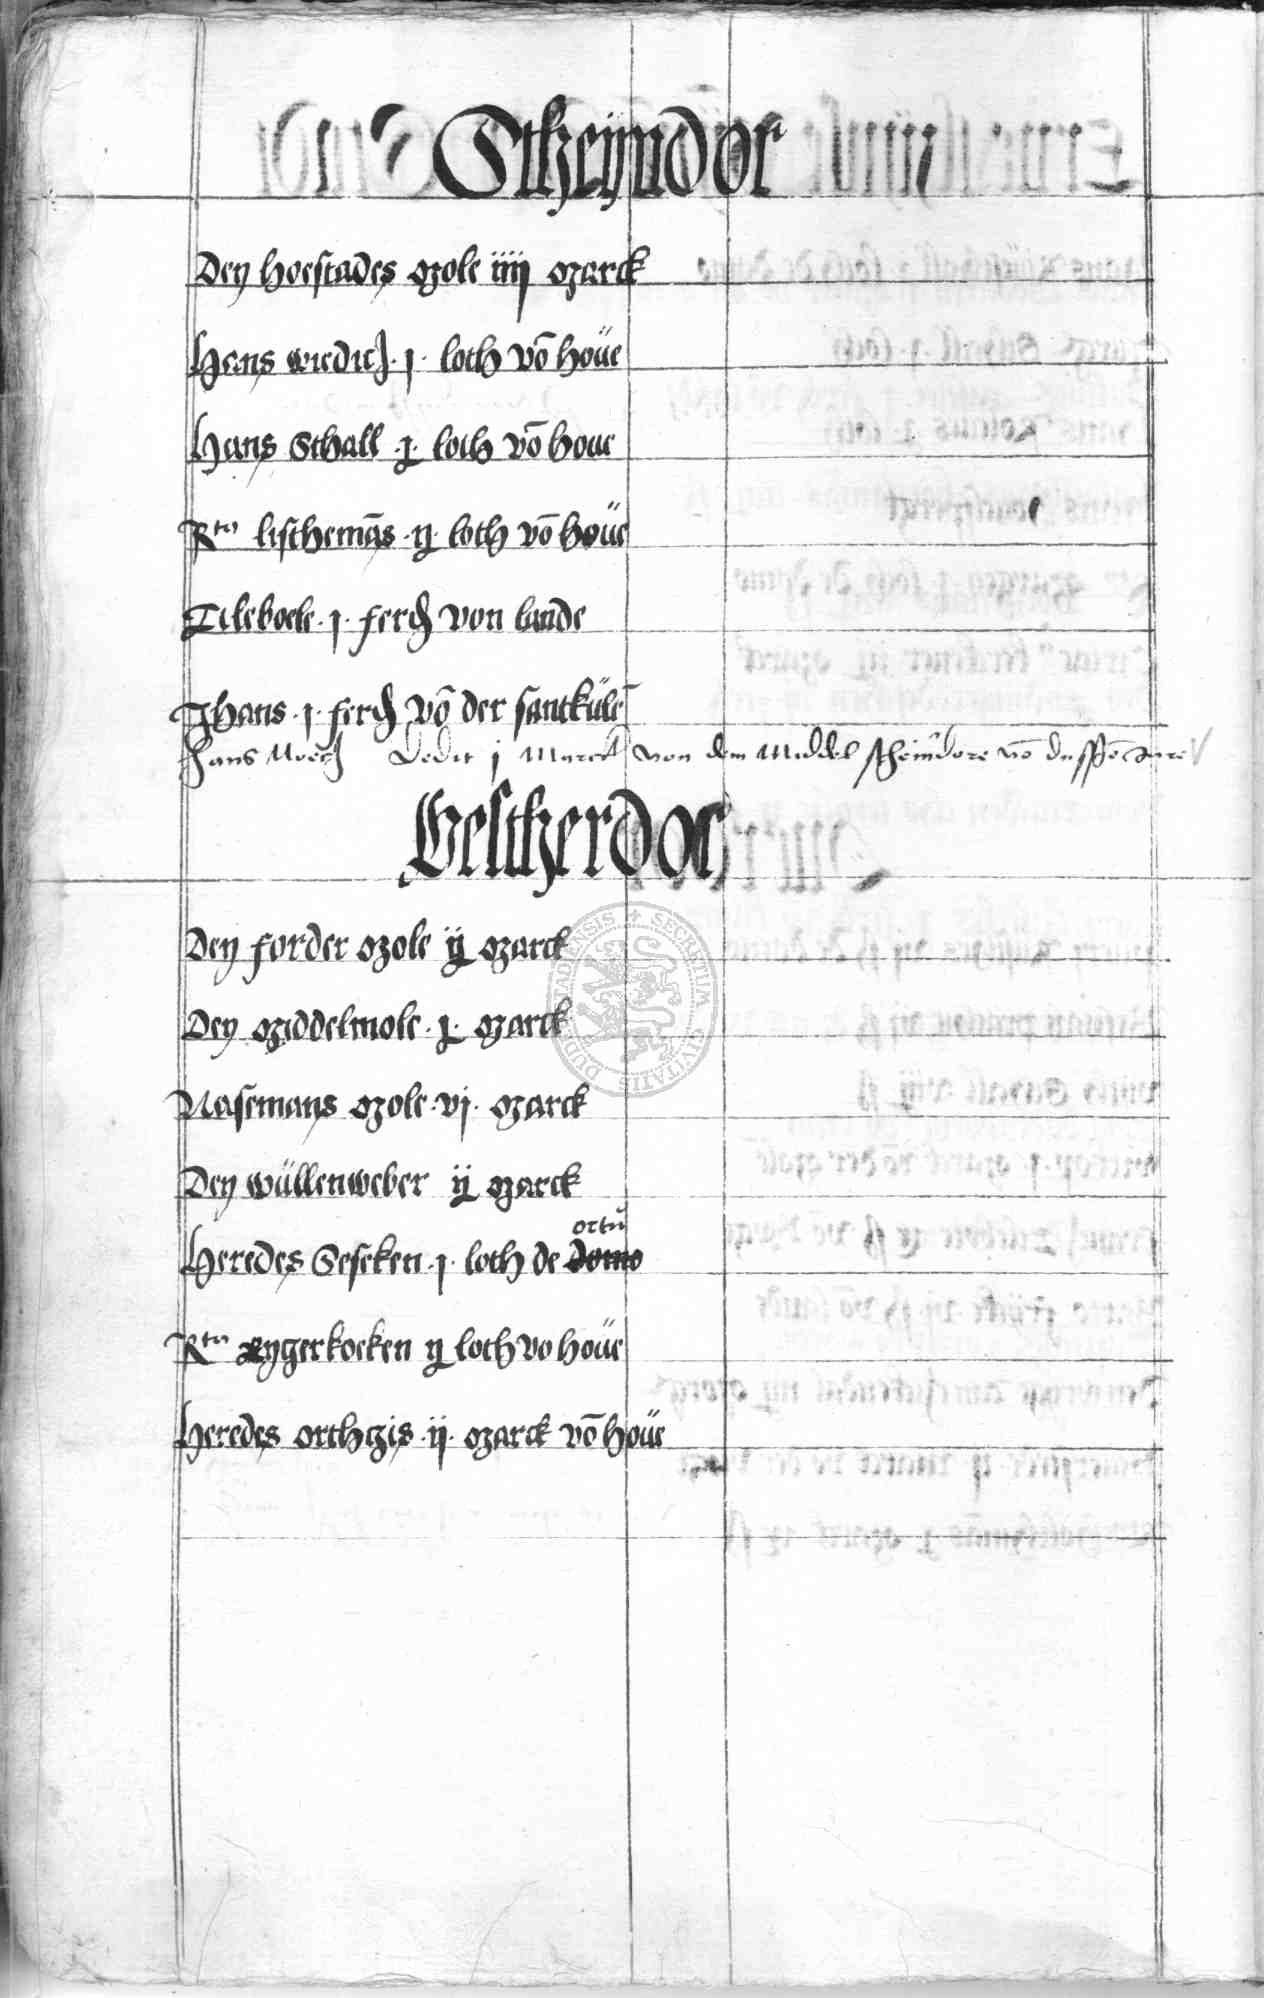 Stheyndor
Dey hoestades mole iiij marck
Hans wedic .j. loth vō hoüe
Hans Sthall .j. loth vō houe
Rta listhemās .ij. loth vō hoüe
Tileboele .j. ferd von lande
Jhans .j. ferd vō der santküle
Hans Dedit j Marck von dem Middel stheindore vō dussē Jare
Gestherdor
Dey forder mole ij marck
Dey middelmole .j. marck
Nasemans mole .vj. marck
Dey wüllenweber ij marck
ortū
Heredes Geseken .j. loth de domo
Rta Rygerkoeken ij loth vo hoüe
Heredes orthgis .ij. marck vō hoüe
SECRETUM CIVITATIS DUDERSTADIENSIS